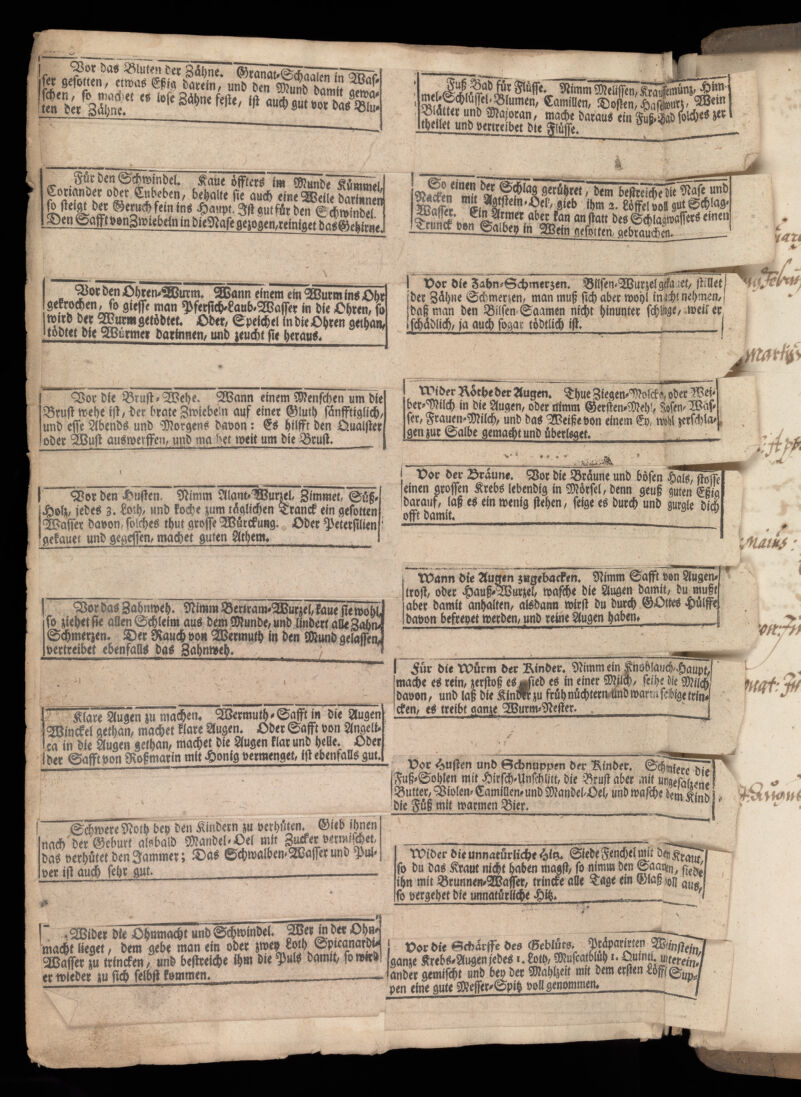 Vor das Bluten der Zähne. Granat-Schaalen in Was-
ser gesotten, etwas Eßig darein, und den Mund damit gewa-
schen, so machet es lose Zähne feste, ist auch gut vor das Blu-
ten der Zähne.
Für den Schwindel. Kaue öffters im Munde Kümmel,
Coriander oder Cubeben, behalte sie auch eine Weile darinnen
so steigt der Geruch fein ins Haupt. Ist gut für den Schwindel.
Den Safft von Zwiebeln in die Nase gezogen, reiniget das Gehirne.
Vor den Ohren-Wurm. Wann einem ein Wurm ins Ohr
gekrochen, so giesse man Pfersich-Laub-Wasser in die Ohren, so
wird der Wurm getödtet. Oder, Speichel in die Ohren gethan,
tödtet die Würmer darinnen, und zeucht sie heraus.
Vor die Brust-Wehe. Wann einem Menschen um die
Brust wehe ist, der brate Zwiebeln auf einer Gluth sänfftiglich,
und esse Abends und Morgens davon: Es hilfft den Qualster
oder Wust auswerffen, und machet weit um die Brust.
Vor den Husten. Nimm Alant-Wurzel, Zimmet, Süß-
Holz, jedes 3. Loth, und koche zum täglichen Tranck ein gesotten
Wasser davon, solches thut grosse Würckung. Oder Petersilien
gekauet und gegessen, machet guten Athem.
Vor das Zahnweh. Nimm Bertram-Wurzel, kaue sie wohl,
so ziehet sie allen Schleim aus dem Munde, und lindert alle Zahn-
Schmerzen. Der Rauch von Wermuth in den Mund gelassen,
vertreibet ebenfalls das Zahnweh.
Klare Augen zu machen. Wermuth-Safft in die Augen
Winckel gethan, machet klare Augen. Oder Safft von Angeli-
ca in die Augen gethan, machet die Augen klar und helle. Oder
der Safft von Roßmarin mit Honig vermenget, ist ebenfalls gut.
Schwere Noth bey den Kindern zu verhüten. Gieb ihnen
nach der Geburt alsbald Mandel-Oel mit Zucker vermischet,
das verhütet den Jammer; Das Schwalben-Wasser und Pul-
ver ist auch sehr gut.
Wider die Ohnmacht und Schwindel. Wer in der Ohn-
macht lieget, dem gebe man ein oder zwey Loth Spicanardi-
Wasser zu trincken, und bestreiche ihm die Puls damit, so wird
er wieder zu sich selbst kommen.
Fuß Bad für Flüsse. Nimm Melissen, Kraussemünz, Him-
mel-Schlüssel-Blumen, Camillen, Dosten, Haselwurz, Wein
Blätter und Majoran, mache daraus ein Fuß-Bad solches zer
theilet und vertreibet die Flüsse.
So einen der Schlag gerühret, dem bestreiche die Nase und
Nacken mit Agtstein-Oel, gieb ihm 2. Löffel voll gut Schlag-
Wasser. Ein Armer aber kan an statt des Schlagwassers einen
Trunck von Salbey in Wein gesotten, gebrauchen.
Vor die Zahn-Schmerzen. Bilsen-Wurzel gekauet, stillet
der Zähne Schmerzen, man muß sich aber wohl in acht nehmen,
daß man den Bilsen-Saamen nicht hinunter schlinge, weil er
schädlich, ja auch sogar tödtlich ist.
Wider Röthe der Augen. Thue Ziegen-Molcken, oder Wei-
ber-Milch in die Augen, oder nimm Gersten-Mehl, Rosen-Was-
ser, Frauen-Milch, und das Weiße von einem Ey, wohl zerschla-
gen zur Salbe gemacht und überleget.
Vor der Bräune. Vor die Bräune und bösen Hals, stosse
einen grossen Krebs lebendig in Mörsel, denn geuß guten Eßig
darauf, laß es ein wenig stehen, seige es durch und gurgle dich
offt damit.
Wann die Augen zugebacken. Nimm Safft von Augen-
trost, oder Hauß-Wurzel, wasche die Augen damit, du must
aber damit anhalten, alsdann wirst du durch GOttes Hülffe
davon befreyet werden, und reine Augen haben.
Für die Würm der Kinder. Nimm ein Knoblauch-Haupt,
mache es rein, zerstoß es sied es in einer Milch, seihe die Milch
davon, und laß die Kinder zu früh nüchtern und warm selbige trin-
cken, es treibt ganze Wurm-Nester.
Vor Husten und Schnuppen der Kinder. Schmiere die
Fuß-Sohlen mit Hirsch-Unschlitt, die Brust aber mit ungesalzene
Butter, Violen- Camillen- und Mandel-Oel, und wasche dem Kind
die Füß mit warmen Bier.
Wider die unnatürliche Hitz. Siede Fenchel mit dem Kraut,
so du das Kraut nicht haben magst, so nimm den Saamen, siede
ihn mit Brunnen-Wasser, trincke alle Tage ein Glaß voll aus,
so vergehet die unnatürliche Hitz.
Vor die Schärffe des Geblüts. Präparirten Weinstein,
ganze Krebs-Augen jedes 1. Loth, Muscatblüh 1. Quintl. unterein-
ander gemischt und bey der Mahlzeit mit dem ersten Löffl Sup-
pen eine gute Messer-Spitz voll genommen.